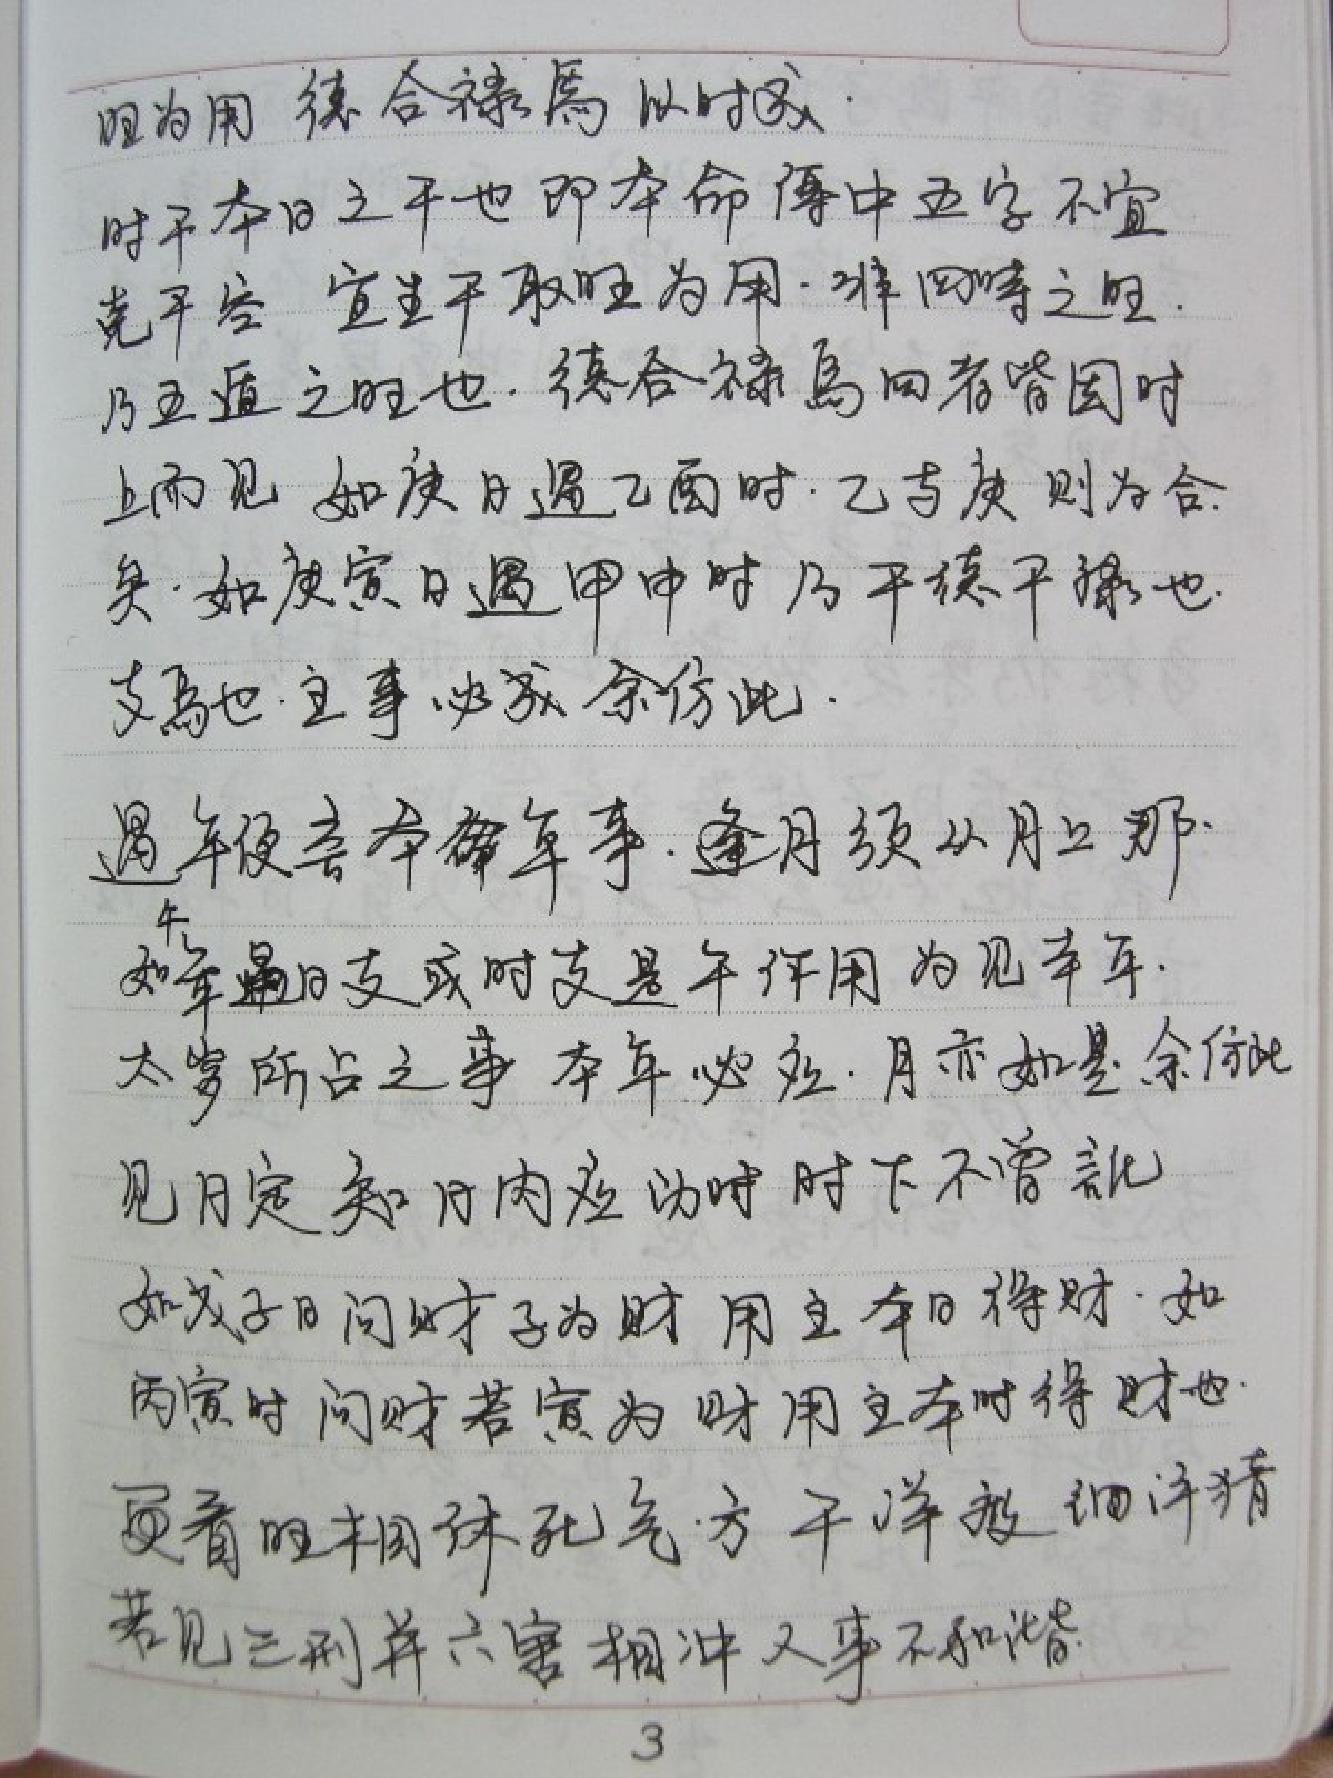 旺为用 德合禄马以时成.
时干本日之干也即本命傳中五字不宜
克干宫 宜生干取旺为用.非四時之旺.
乃五遁之旺也.德合禄馬四者皆因时
上而见 如庚日遇乙酉时.乙与庚则为合.
矣.如庚寅日遇甲申时乃干德干禄也.
支馬也.主事必成 余仿此.
遇年便言本年事.逢月须从月上那.
午
如年遇日支或时支是午作用为见本年.
太岁所占之事 本年必应.月亦如是.余仿此
见日定知日内应 沩时时下不曾訛
如戊子日问财子为财 用主本日得财.如
丙寅时问财若寅为财用主本时得财也.
更看旺相休死气.方干详数细详猜
若见三刑并六害相冲又事不和谐.
3